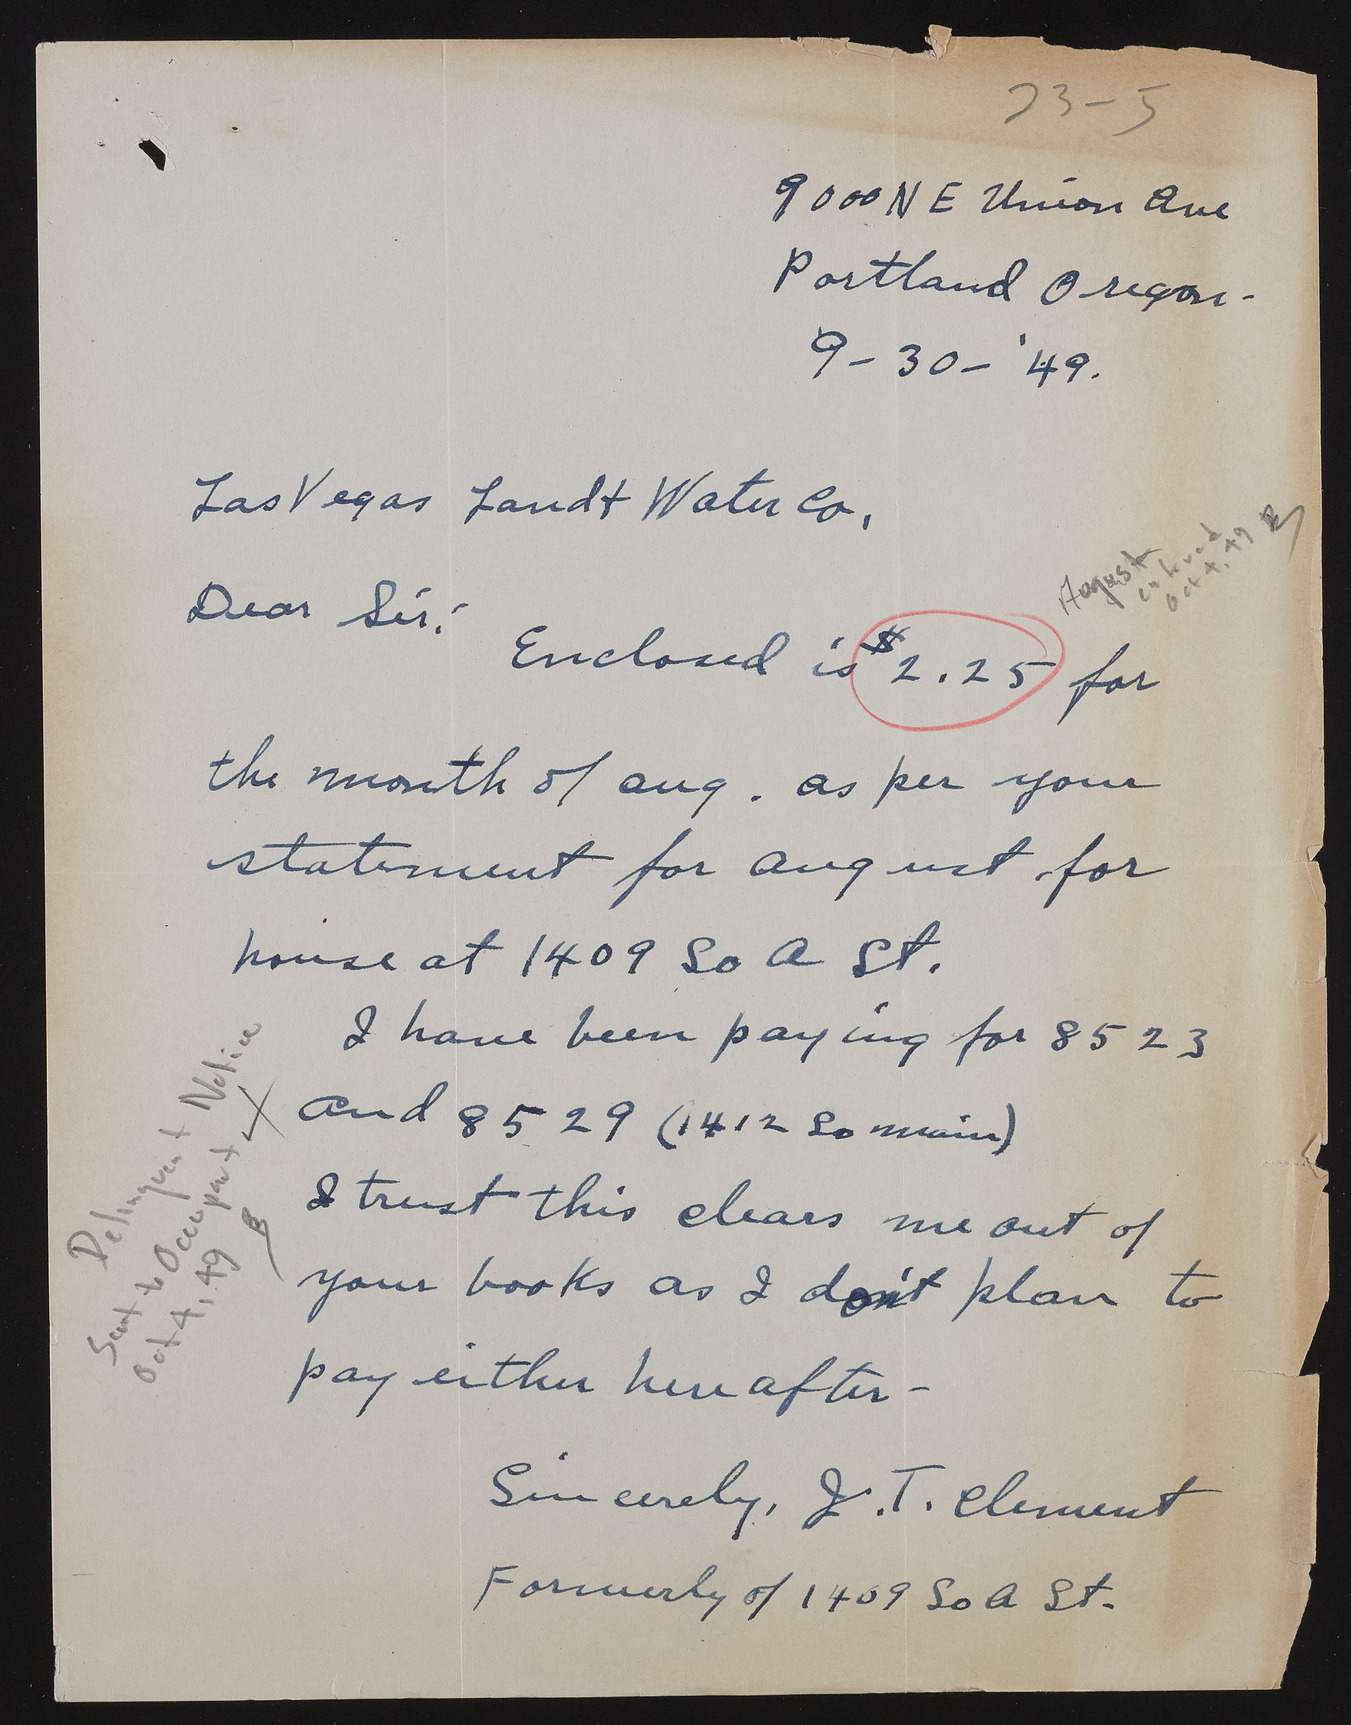 23-5
9000 N E Union Ave
Portland Oregon-
9-30-'49.
Las Vegas Land + Water Co.
Dear Sir:
August
entered
Oct 4, 49
Enclosed is $2.25 for
the month of aug. as per your
statement for august for
house at 1409 So A St.
I have been paying for 8523
and 8529 (1412 So main)
I trust this clears me out of
your books as I don't plan to
pay either hereafter-
Delinquent Notice
Sent to Occupant
Oct 4, 49 B
Sincerely, J.T. Clement
Formerly of 1409 So A St.